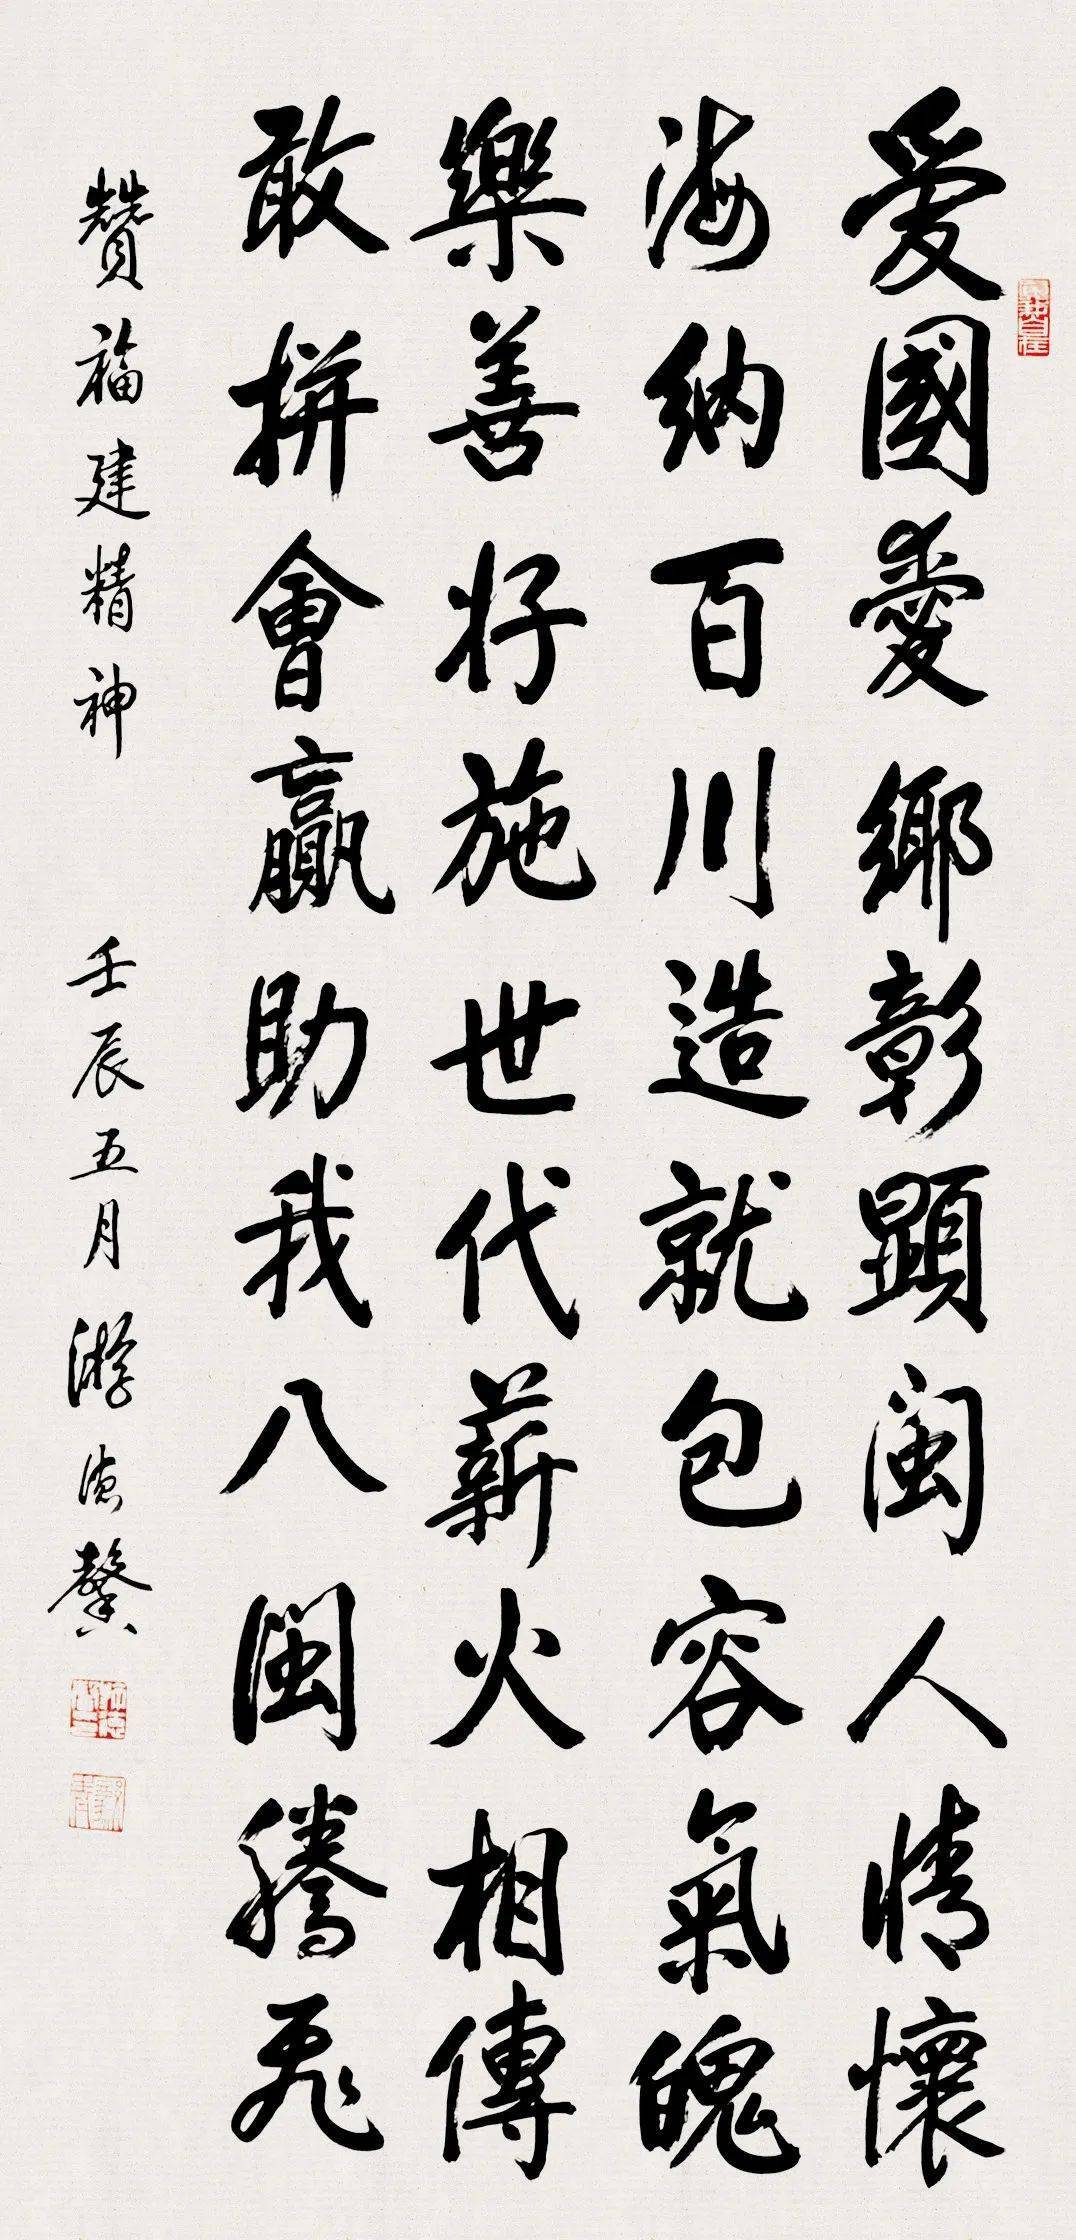 愛國愛鄉彰顯閩人情懷
海納百川造就包容氣魄
樂善好施世代薪火相傳
敢拼會贏助我八閩騰飛
贊福建精神 壬辰五月游德馨